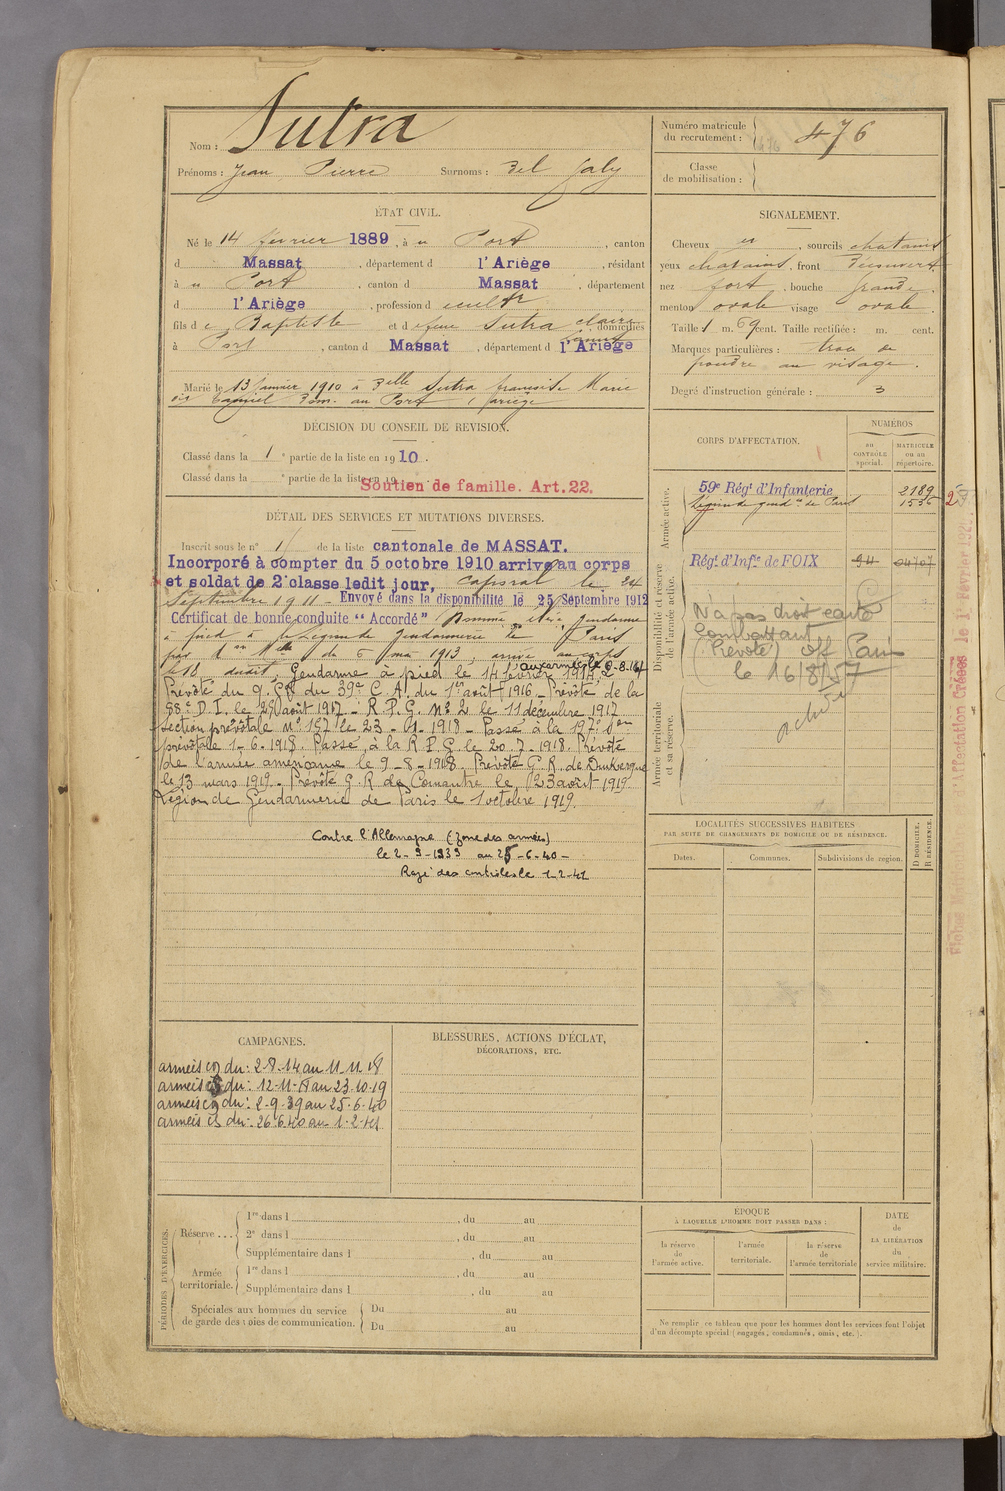 Nom : Sutra
Prénoms : Jean Pierre Surnoms : Bel Jaly
Numéro matricule du recrutement : 476
476
Classe de mobilisation :
ÉTAT CIVIL.
Né le 14 février 1889, à Port, canton
d Massat, département d l'Ariège, résidant
à Port, canton d Massat, département
d l'Ariège, profession d cultr
fils d e Baptiste et d Sutra claire domiciliés
à Port, canton d Massat, département d l'Ariège
Marié le 13 janvier 1910 à Delle Sutra françoise Marie
dom. au Port (Ariège
DÉCISION DU CONSEIL DE REVISION.
Classé dans la 1e partie de la liste en 1910.
Classé dans la e partie de la liste en 19
Soutien de famille. Art. 22.
DÉTAIL DES SERVICES ET MUTATIONS DIVERSES.
Inscrit sous le n° 1 de la liste cantonale de MASSAT.
Incorporé à compter du 5 octobre 1910 arrivé au corps
et soldat de 2e classe ledit jour, caporal le 24
Septembre 1911 - Envoyé dans la disponibilité le 25 Septembre 1912
Certificat de bonne conduite "Accordé" Nommé élève gendarme
à pied à la Légion de Gendarmerie de Paris
par du 6 mai 1913, arrivé au corps
le 18 dudit, Gendarme à pied le 14 février 1914, aux armées le 2-8-14
Prévôté du 9. du 39e C.A. du 1er août 1916 - Prévôté de la
88e D.I. le 29 août 1917 - R.P.G. N° 2 le 11 décembre 1917
Section prévôtale N° 157 le 23-4-1918 - Passé à la 197e
prévôtale 1-6-1918. Passé à la R.P.G le 20-7-1918. Prévôté
de l'armée américaine le 9-8-1918 Prévôté G.R. de Dunkerque
le 13 mars 1919 - Prévôté G.R de Connantre le 23 août 1919
Légion de Gendarmerie de Paris le 1 octobre 1919.
Contre l'Allemagne (Zone des armées)
le 2-9-1939 au 25-6-40 -
Rayé des contrôles le 1-2-41
CAMPAGNES.
armées du : 2-8-14 au 11-11-18
armées du : 12-11-18 au 23-10-19
armées du : 2-9-39 au 25-6-40
armées du : 26-6-40 au 1-2-41
BLESSURES, ACTIONS D'ÉCLAT,
DÉCORATIONS, ETC.
PÉRIODES D'EXERCICES.
Réserve ...
1re dans l , du au
2e dans l , du au
Supplémentaire dans l , du au
Armée territoriale.
1re dans l , du au
Supplémentaire dans l , du au
Spéciales aux hommes du service
de garde des voies de communication.
Du au
Du au
SIGNALEMENT.
Cheveux et, sourcils chatains
yeux chatains, front découvert
nez fort, bouche grande.
menton ovale visage ovale.
Taille 1 m. 69 cent. Taille rectifiée : m. cent.
Marques particulières : trou de
poudre au visage.
Degré d'instruction générale : 3
CORPS D'AFFECTATION.
NUMÉROS
AU CONTRÔLE spécial.
MATRICULE ou au répertoire.
Armée active.
59e Régt d'Infanterie 2189
Légion de gendie de Paris 1536
Disponibilité et réserve de l'armée active.
Régt d'Infie de FOIX 94 04707
N'a pas droit carte
Combattant
(Prévôté) Off Paris
le 16/8/57
Armée territoriale et sa réserve.
LOCALITÉS SUCCESSIVES HABITÉES
PAR SUITE DE CHANGEMENTS DE DOMICILE OU DE RÉSIDENCE.
Dates. Communes. Subdivisions de région. D DOMICILE. R RÉSIDENCE.
ÉPOQUE
À LAQUELLE L'HOMME DOIT PASSER DANS :
la réserve de l'armée active.
l'armée territoriale.
la réserve de l'armée territoriale
DATE
de
LA LIBÉRATION
du
service militaire.
Ne remplir ce tableau que pour les hommes dont les services font l'objet
d'un décompte spécial (engagés, condamnés, omis, etc.).